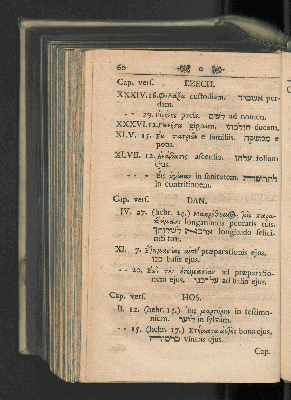 60
Cap. vers. EZECH.
XXXIV. 16. Φυλάξω custodiam. אשמיד perdam.
-- 29. Εἰρήνης pacis. לשם ad nomen.
XXXVI. 12. Γεννήσω gignam, והולכתי ducam.
XLV. 15. Ἐκ πατριῶν e familiis. ממשקה e
potu.
XLVII. 12. Ἀνάβασις ascensus. עלהו folium
ejus.
-- -- Εἰς ὑγίειαν in sanitatem. לתרופה
in contritionem.
Cap. vers. DAN.
IV. 27. (hebr. 24.) longanimis peccatis tuis.
longitudo felicitati tuæ.
XI. 7. præparationis ejus,
כנו basis ejus.
-- 20. Ἐπὶ τὴν ἑτοιμασίαν ad præparationem
ejus, על כנו ad basin ejus.
Cap. vers. HOS.
II. 12. (hebr. 14.) Εἰς μαρτύριον in testimonium.
ליער in sylvam.
-- 15. (hebr. 17.) Κτήματα αὐτῆς bona ejus,
כרמיה vineas ejus.
Cap.